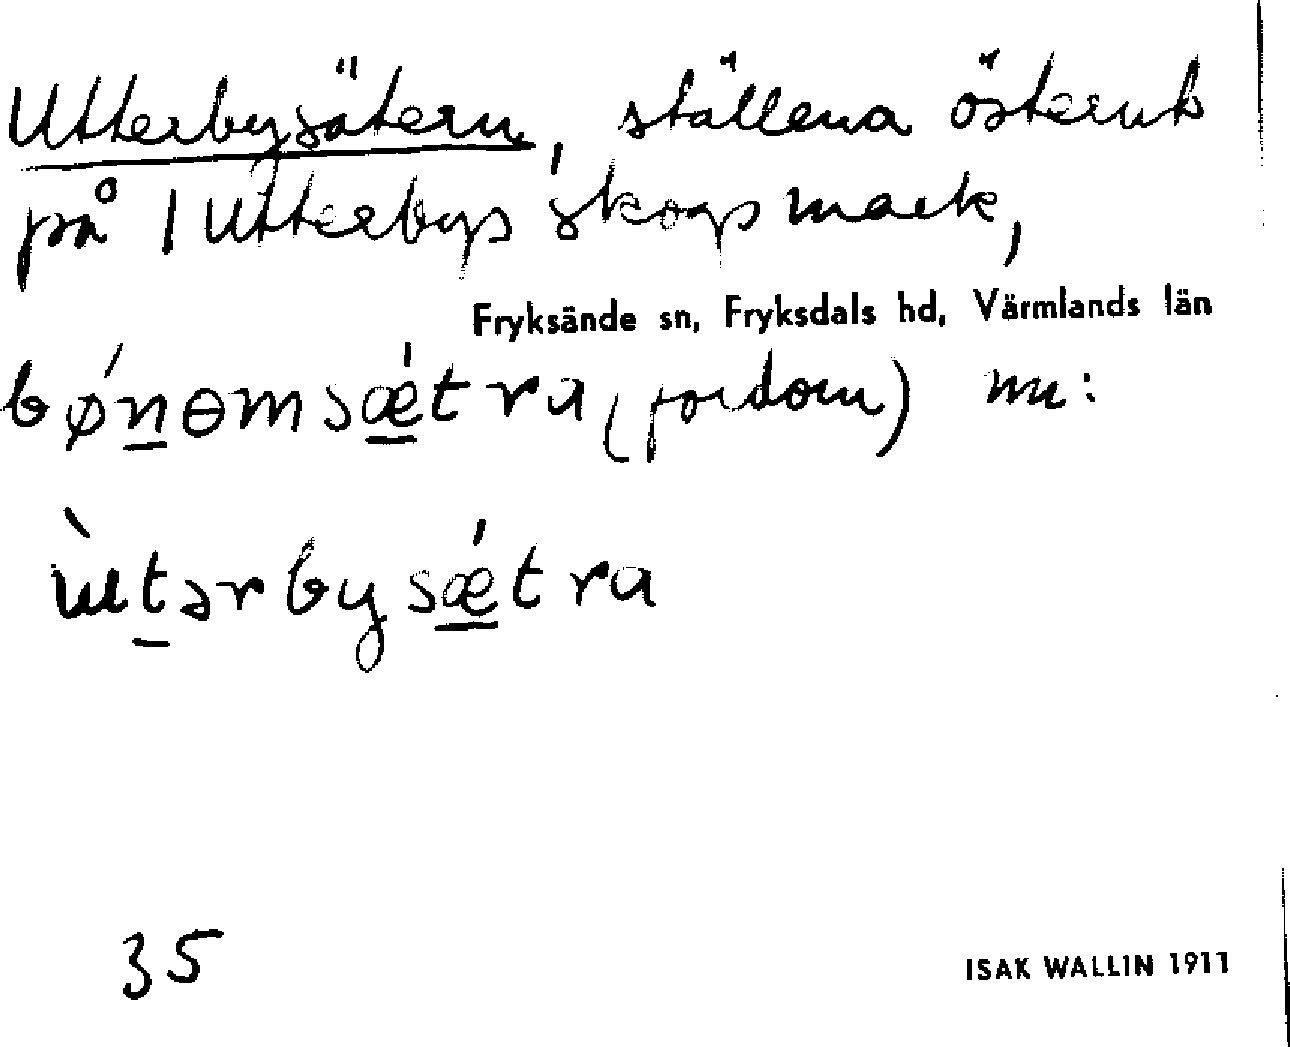 Utterbysätern, ställena österut
på 1 Utterbys skogsmark,
Fryksände sn, Fryksdals hd, Värmlands län
bǿnɵmsǽtra (fordom) nu:
ùtərbysǽtra
35
ISAK WALLIN 1911